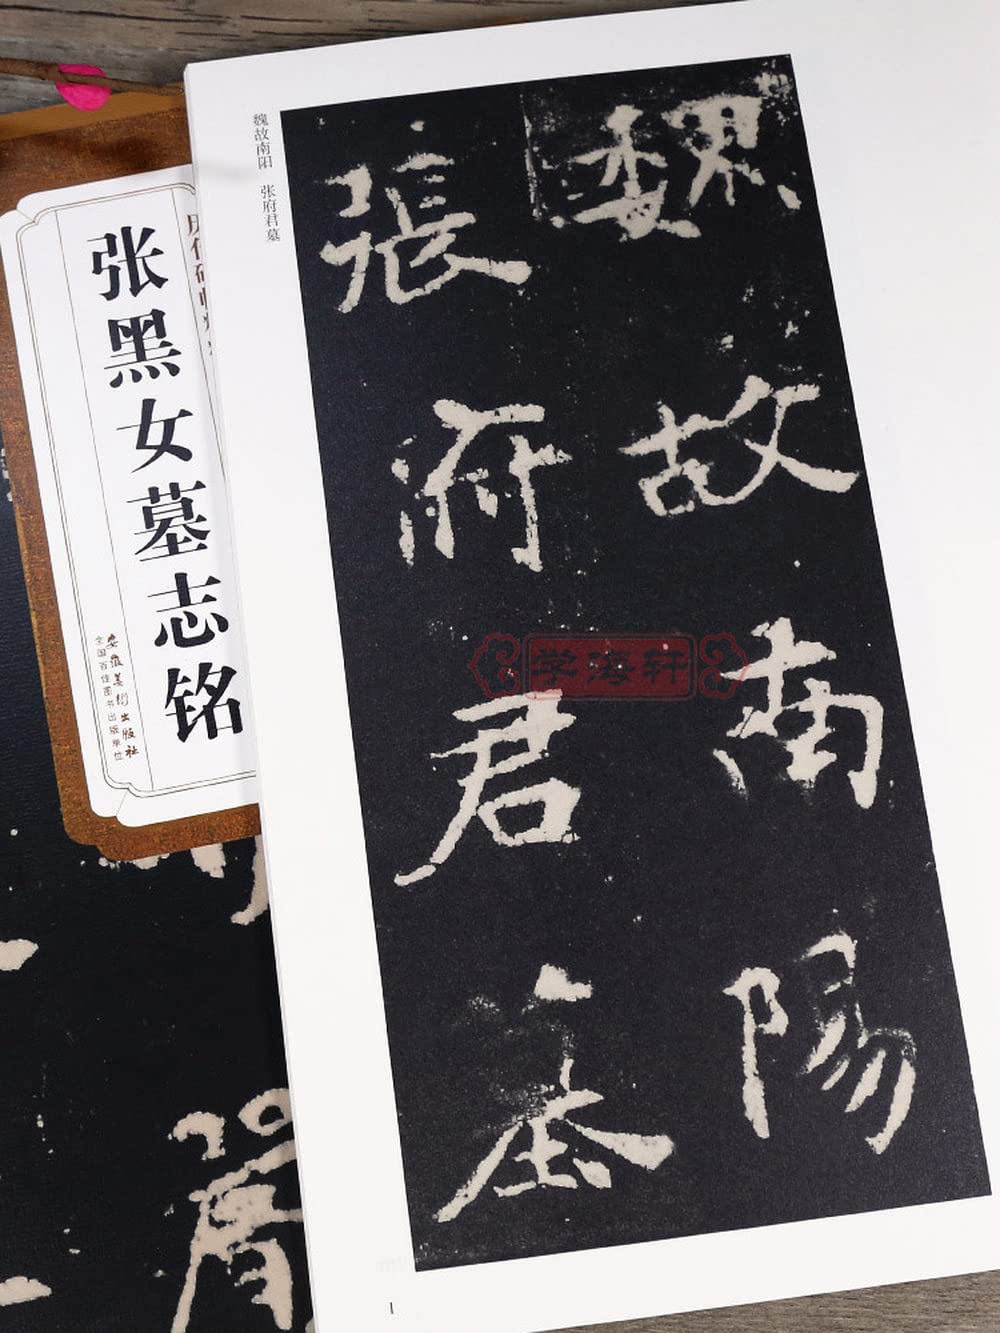 魏故南阳 张府君墓
魏故南陽
張府君墓
学海轩
历代碑帖精粹
张黑女墓志铭
安徽美术出版社
全国百佳图书出版单位
1